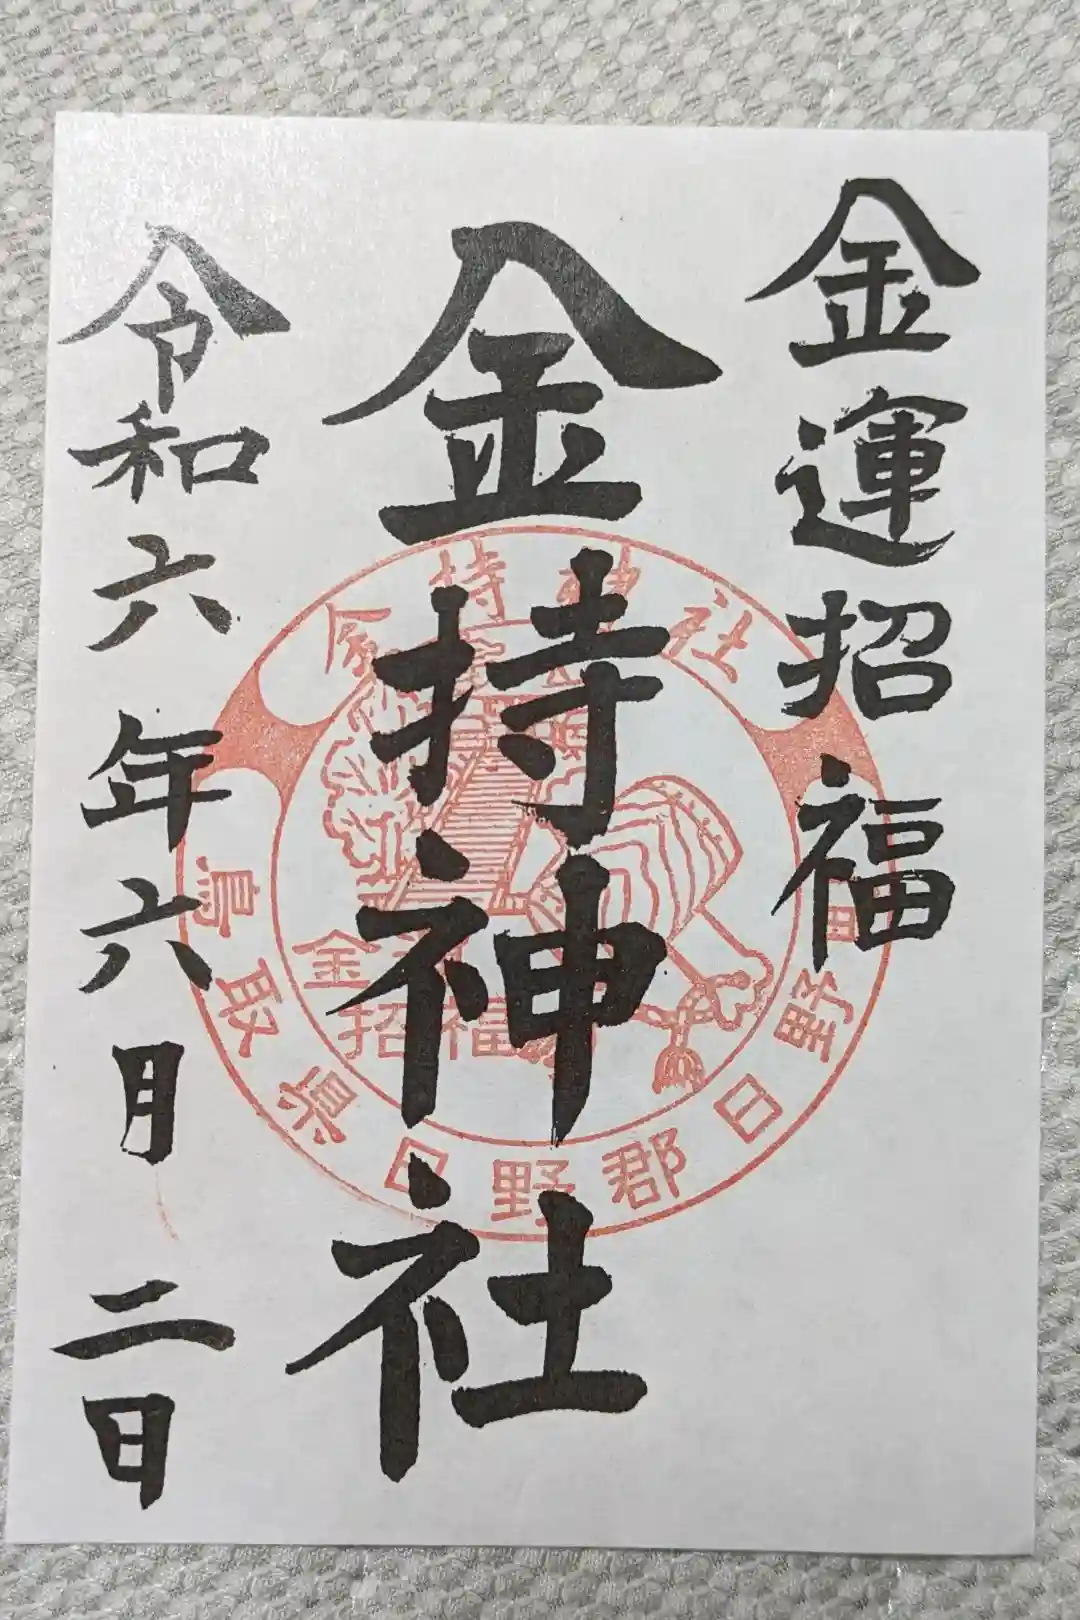 金運招福
金持神社
令和六年六月二日
金持神社
鳥取県日野郡日野
金運
招福